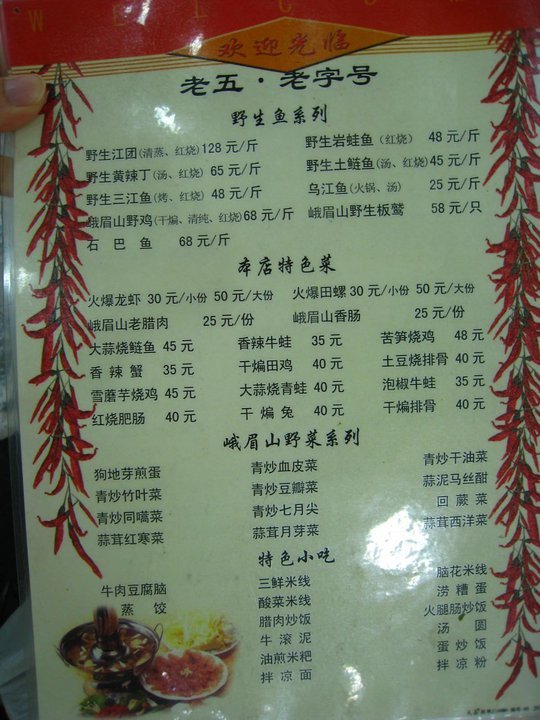 WELCOM
欢迎光临
老五·老字号
野生鱼系列
野生江团(清蒸、红烧)128 元/斤 野生岩蛙鱼(红烧) 48 元/斤
野生黄辣丁(汤、红烧)65 元/斤 野生土鲢鱼(汤、红烧)45 元/斤
野生三江鱼(烤、红烧)48 元/斤 乌江鱼(火锅、汤) 25 元/斤
峨眉山野鸡(干煸、清炖、红烧)68 元/斤 峨眉山野生板鹫 58 元/只
石巴鱼 68 元/斤
本店特色菜
火爆龙虾 30 元/小份 50 元/大份 火爆田螺 30 元/小份 50 元/大份
峨眉山老腊肉 25 元/份 峨眉山香肠 25 元/份
大蒜烧鲢鱼 45 元 香辣牛蛙 35 元 苦笋烧鸡 48 元
香辣蟹 35 元 干煸田鸡 40 元 土豆烧排骨 40 元
雪蘑芋烧鸡 45 元 大蒜烧青蛙 40 元 泡椒牛蛙 35 元
红烧肥肠 40 元 干煸兔 40 元 干煸排骨 40 元
峨眉山野菜系列
狗地芽煎蛋 青炒血皮菜 青炒干油菜
青炒竹叶菜 青炒豆瓣菜 蒜泥马丝酣
青炒同嚆菜 青炒七月尖 回蕨菜
蒜茸红寒菜 蒜茸月芽菜 蒜茸西洋菜
特色小吃
牛肉豆腐脑 三鲜米线 脑花米线
蒸饺 酸菜米线 涝糟蛋
腊肉炒饭 火腿肠炒饭
牛滚泥 汤圆
油煎米粑 蛋炒饭
拌凉面 拌凉粉